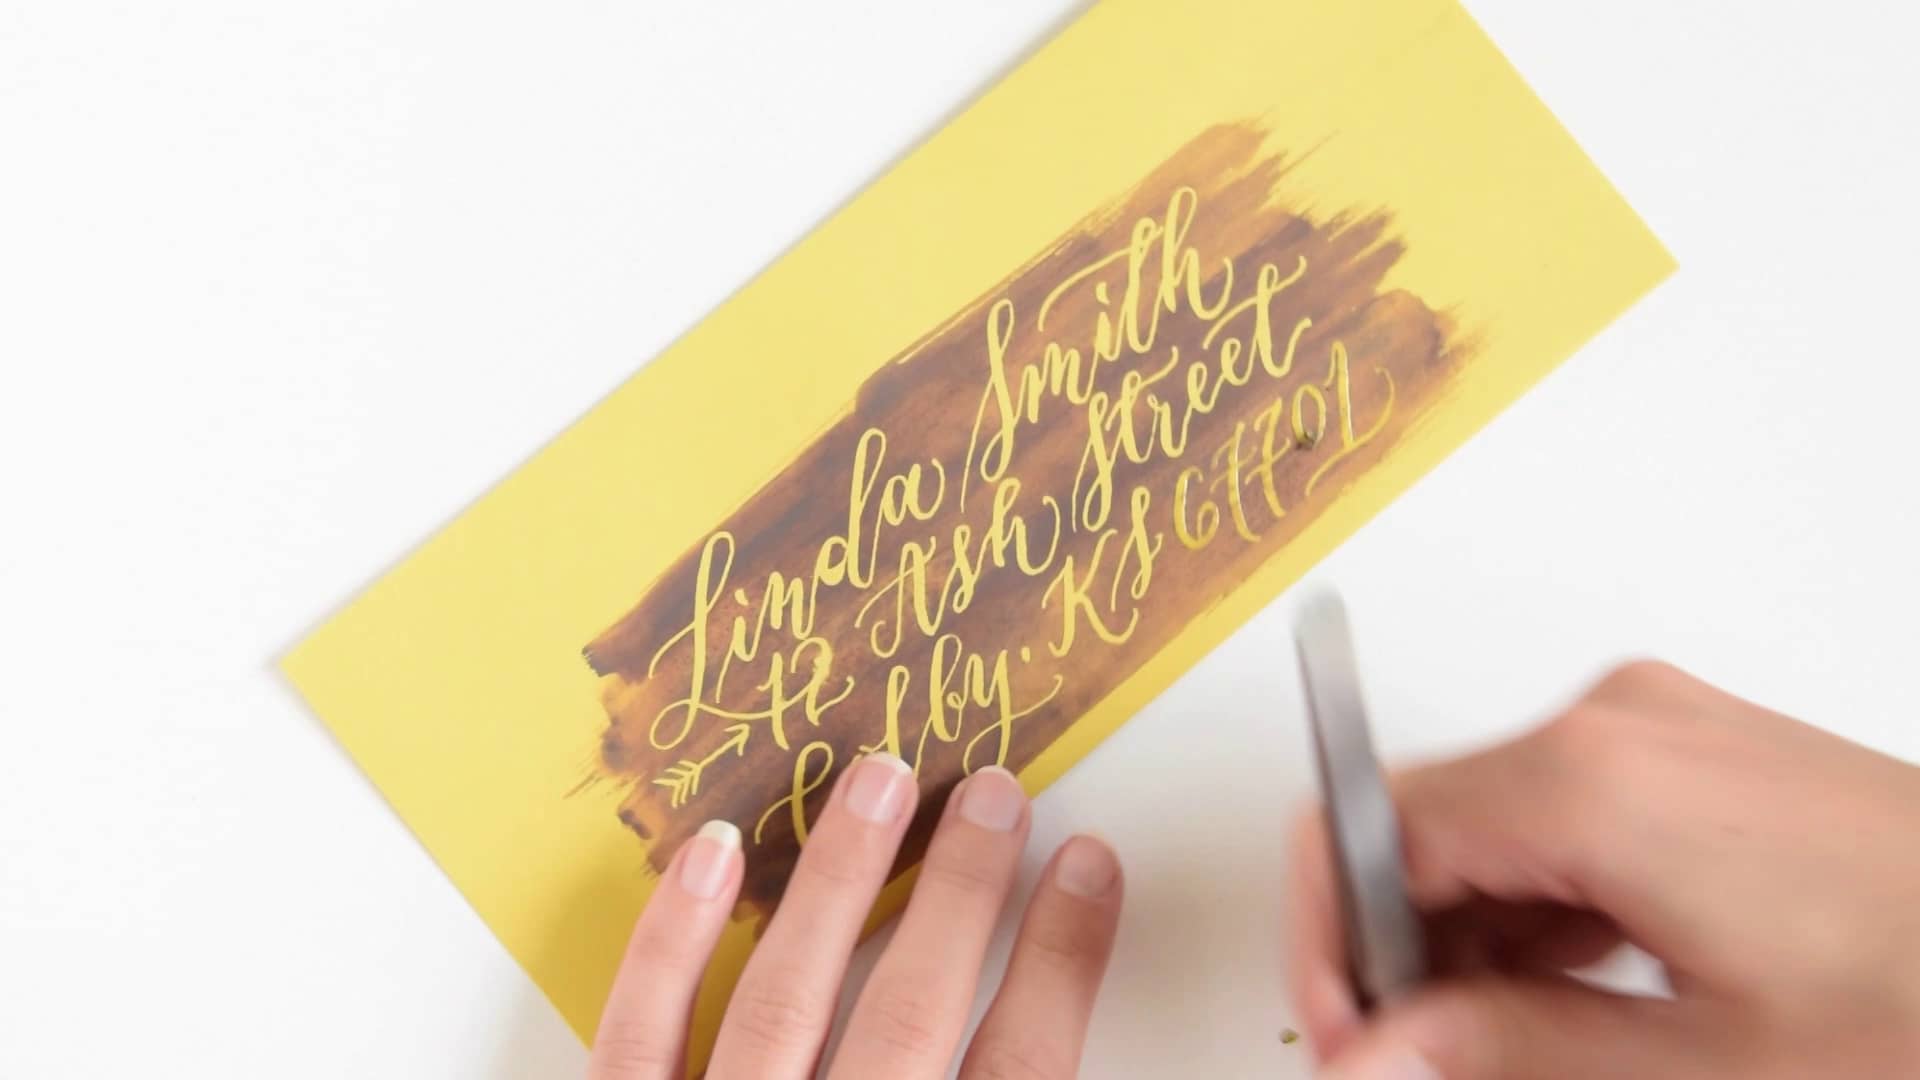 Linda Smith
12 Ash Street
Colby, KS 67701